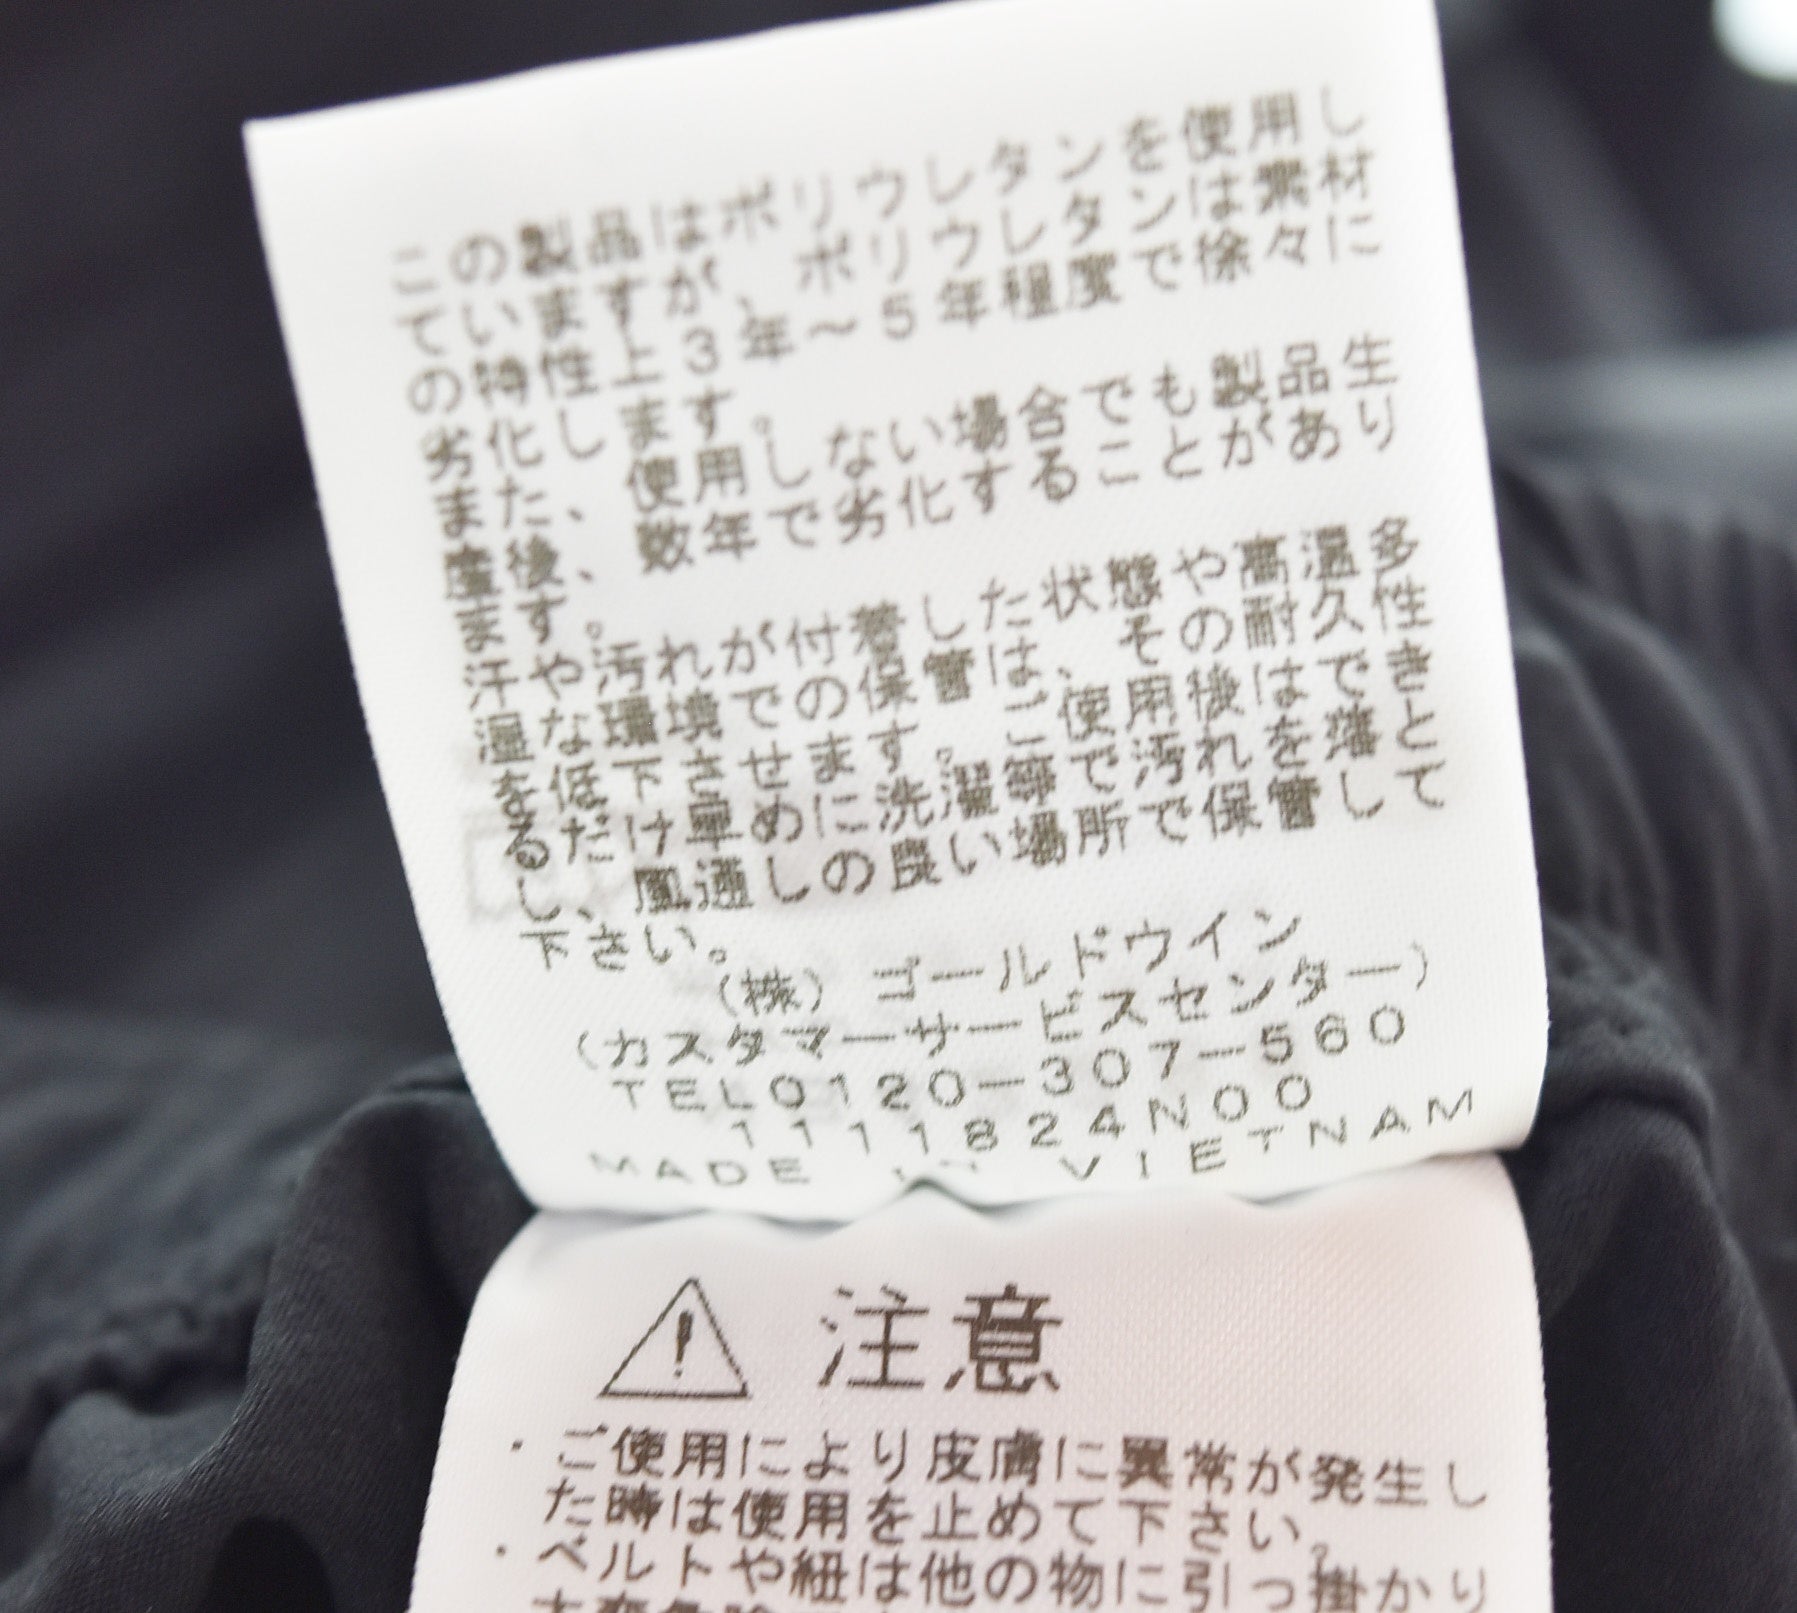 この製品はポリウレタンを使用し
ていますが、ポリウレタンは素材
の特性上3年～5年程度で徐々に
劣化します。
また、使用しない場合でも製品生
産後、数年で劣化することがあり
ます。
汗や汚れが付着した状態や高温多
湿な環境での保管は、その耐久性
を低下させます。ご使用後はでき
るだけ早めに洗濯等で汚れを落と
し、風通しの良い場所で保管して
下さい。
(株) ゴールドウイン
(カスタマーサービスセンター)
TEL0120-307-560
1111824N00
MADE IN VIETNAM
⚠ 注意
・ご使用により皮膚に異常が発生し
た時は使用を止めて下さい。
・ベルトや紐は他の物に引っ掛かり